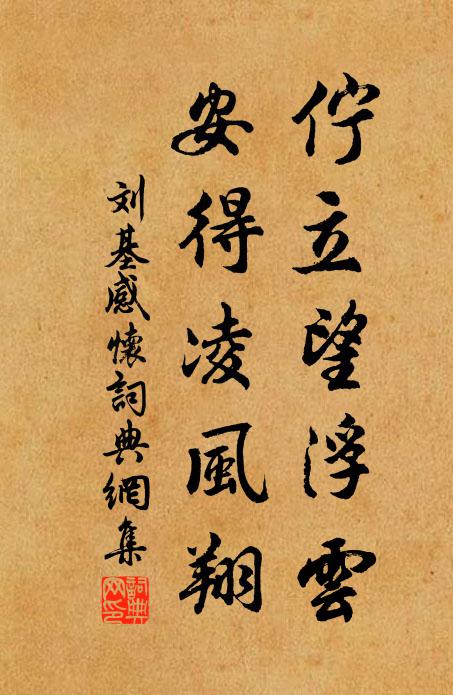 佇立望浮雲
安得凌風翔
刘基感懷詞典網集
詞典网印